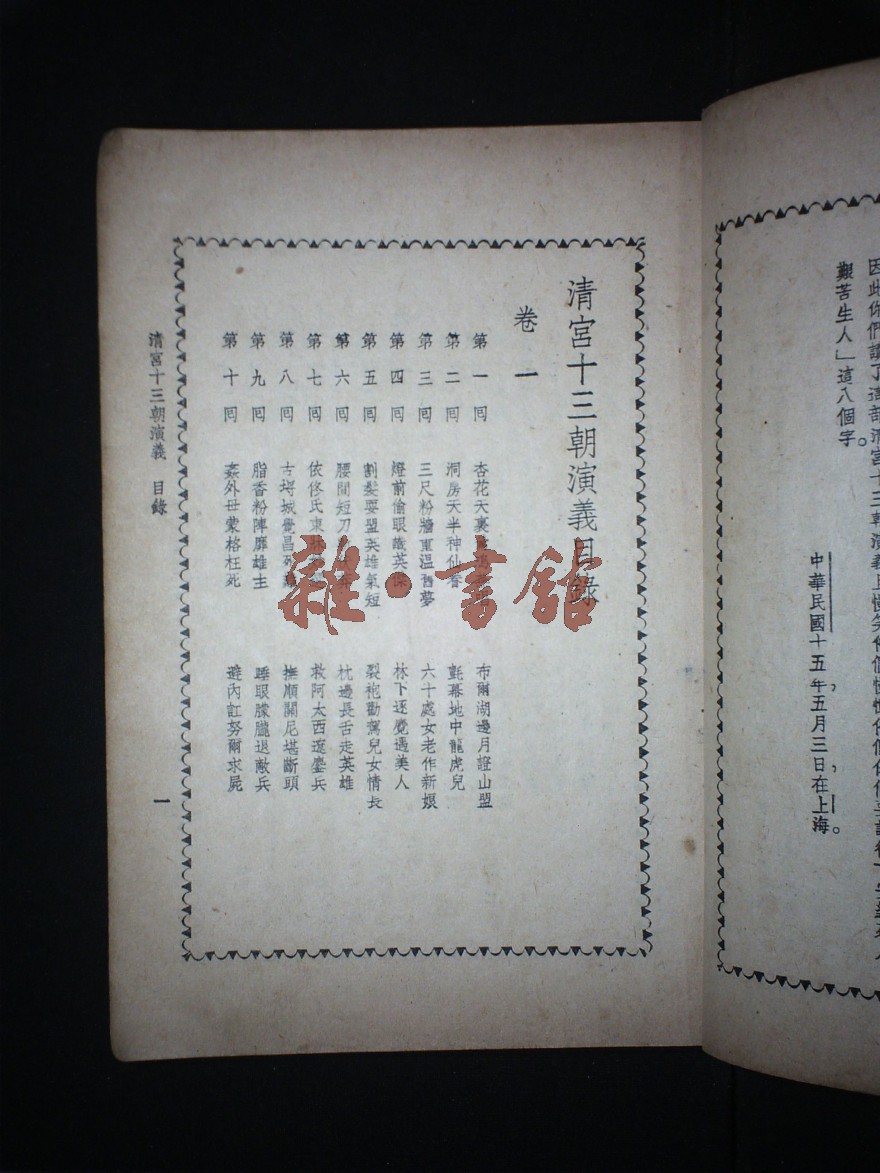 因此你們讀了這部清宮十三朝演義
艱苦生人」這八個字。
中華民國十五年，五月三日，在上海。
清宮十三朝演義目錄
卷一
第一回 杏花天裏 布爾湖邊月證山盟
第二回 洞房天半神仙眷 氈幕地中龍虎兒
第三回 三尺粉牆重溫舊夢 六十處女老作新娘
第四回 燈前偷眼識英 林下逐鹿遇美人
第五回 割髮要盟英雄氣短 裂袍勸駕兒女情長
第六回 腰間短刀 枕邊長舌走英雄
第七回 依佟氏東 救阿太西遼鏖兵
第八回 古埒城覺昌 撫順關尼堪斷頭
第九回 脂香粉陣靡雄主 睡眼朦朧退敵兵
第十回 姦外母蒙格枉死 避內訌努爾求屍
清宮十三朝演義 目錄
一
雜·書館